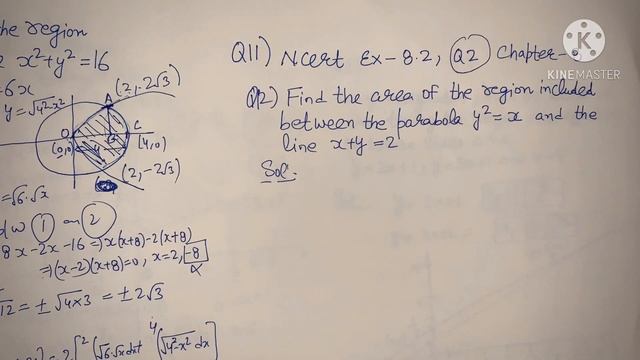 the region
x²+y²=16
6x
y=√4²-x²
(2,2√3)
A
O
C
(0,0)
4
(4,0)
(2,-2√3)
=√6.√x
① an ②
8x-2x-16=)x(x+8)-2(x+8)
=)(x-2)(x+8)=0, x=2, -8
= ±√4x3 = ±2√3
2∫² (√6.√x dx + ⁴ (√4²-x² dx)
Q11) Ncert Ex-8.2, Q2 Chapter-
K
KINEMASTER
Q12) Find the area of the region included
between the parabola y²=x and the
line x+y=2
Sol.